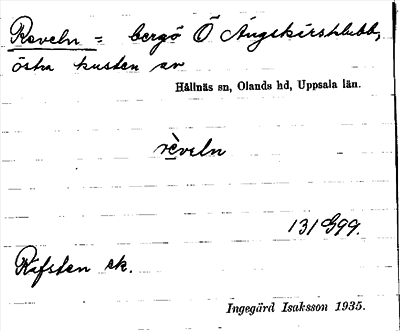 Reveln = bergö Ö Ängskärsklubb,
östra kusten av
Hållnäs sn, Olands hd, Uppsala län.
rèveln
131 G99.
ek.
Ingegärd Isaksson 1935.